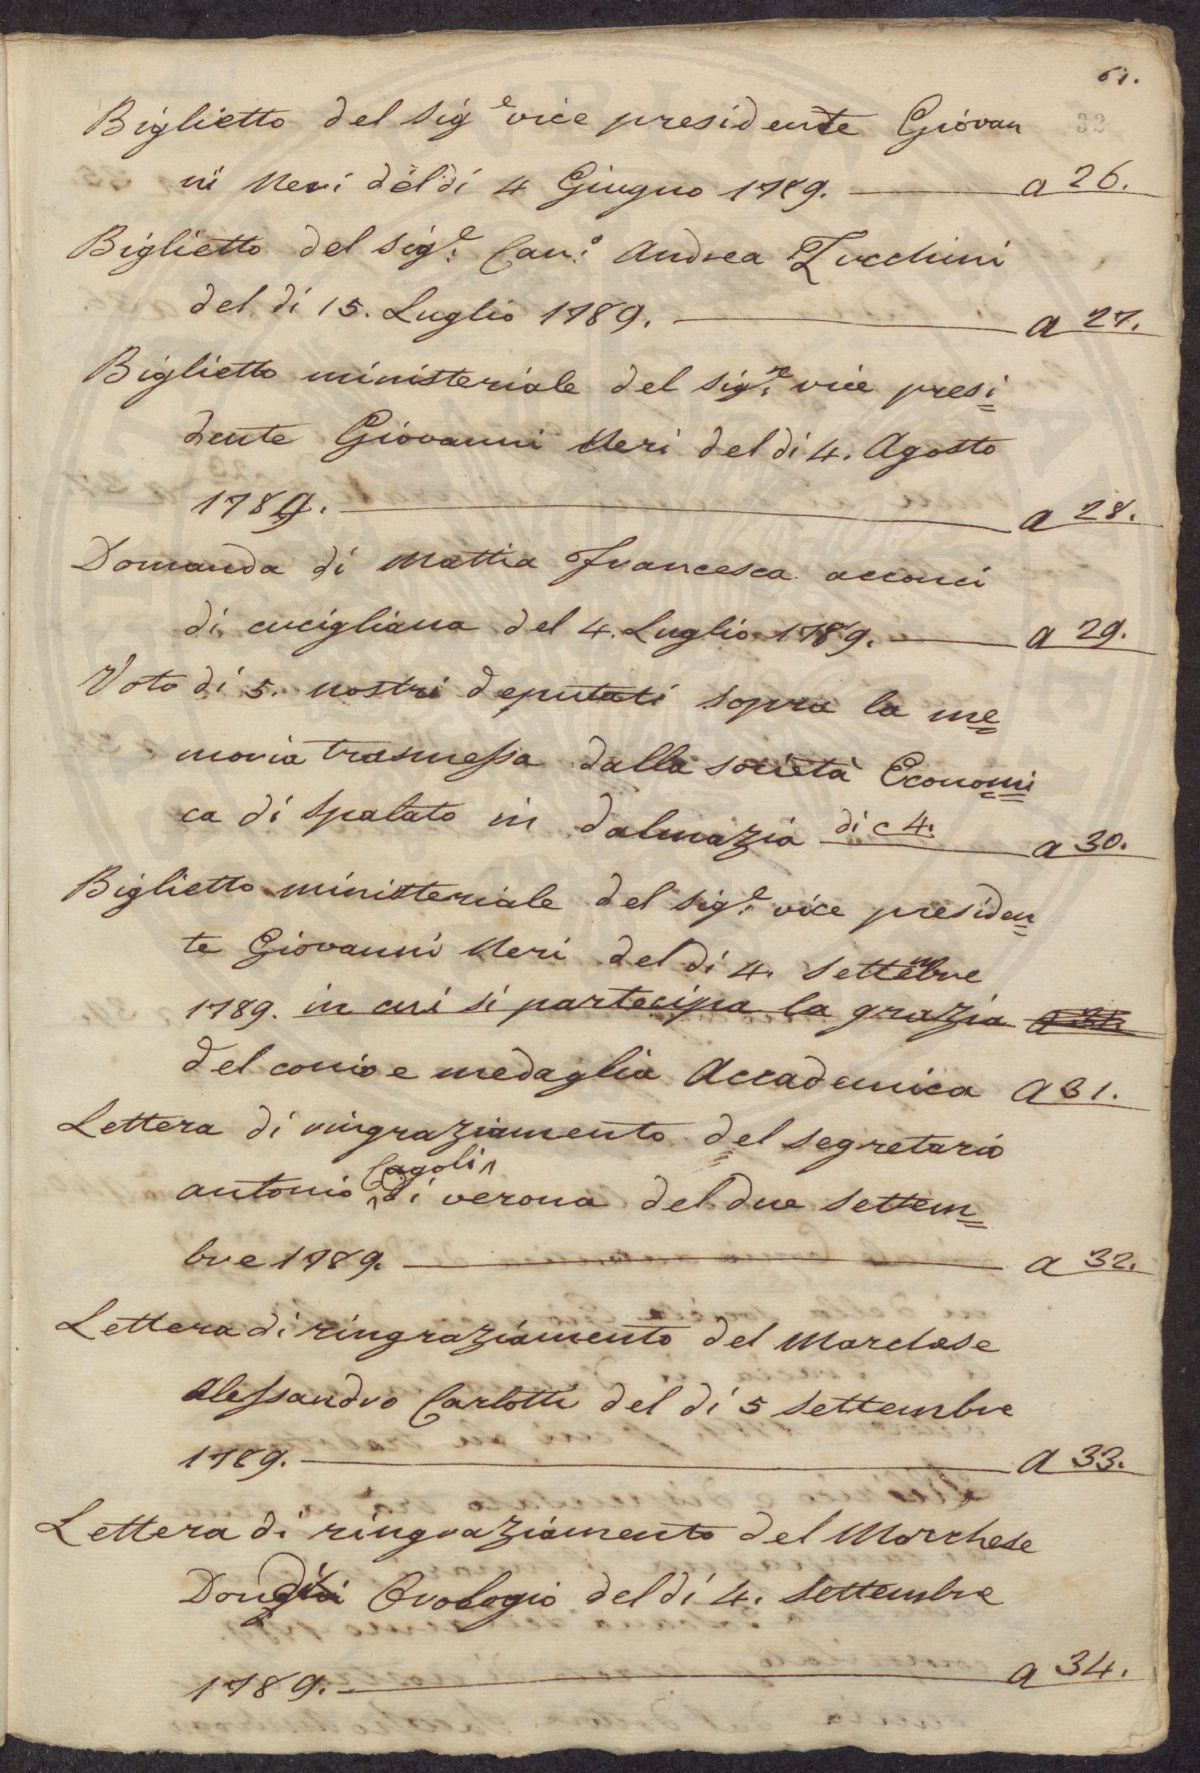 61.
32
Biglietto del Sig.e vice presidente Giovan
ni Neri del dì 4 Giugno 1789. a 26.
Biglietto del Sig.e Can.o Andrea Zucchini
del dì 15. Luglio 1789. a 27.
Biglietto ministeriale del Sig.re vice presi=
dente Giovanni Neri del dì 4. Agosto
1789. a 28.
Domanda di Mattia Francesca acconci
di cucigliana del 4. Luglio 1789. a 29.
Voto di 5. nostri deputati sopra la me=
moria trasmessa dalla società Economi=
ca di Spalato in dalmazia di c 4. a 30.
Biglietto ministeriale del Sig.e vice presiden=
te Giovanni Neri del dì 4. Settembre
1789. in cui si partecipa la grazia a 31.
del conio e medaglia Accademica a 31.
Lettera di ringraziamento del segretario
antonio Cagoli di verona del due Settem=
bre 1789. a 32.
Lettera di ringraziamento del Marchese
Alessandro Carlotti del dì 5 Settembre
1789. a 33.
Lettera di ringraziamento del Marchese
Orologio del dì 4. Settembre
1789. a 34.